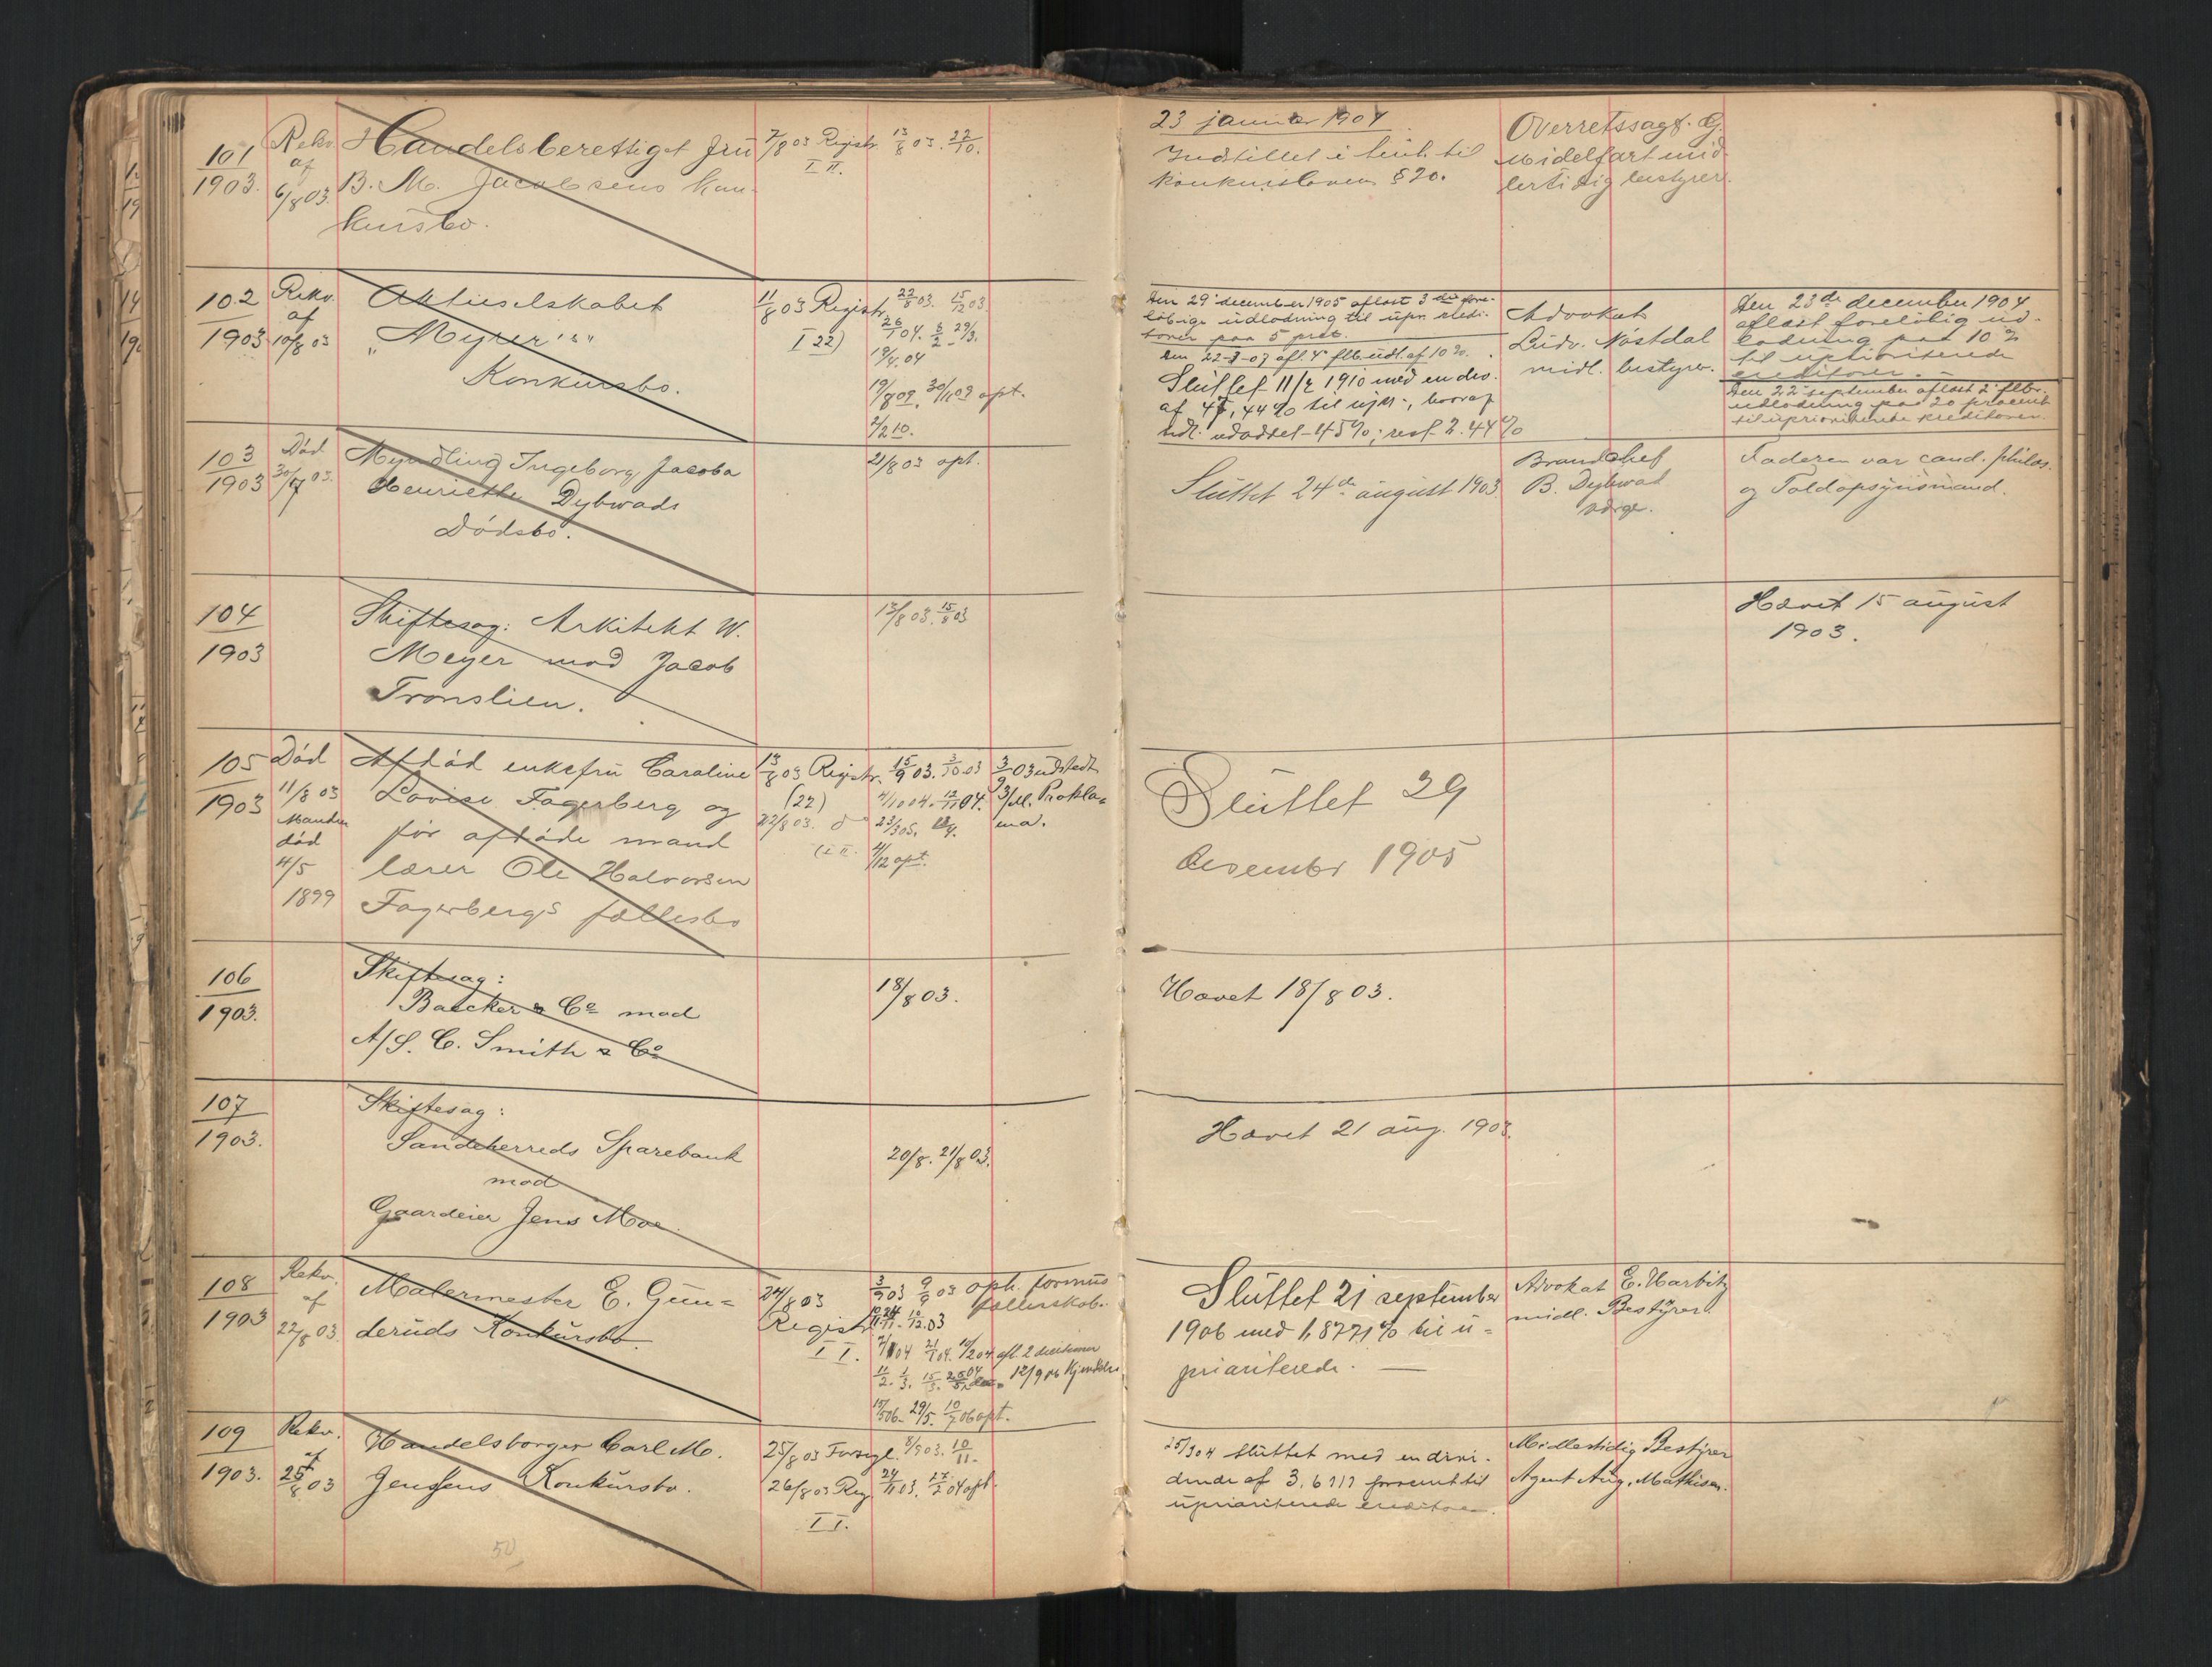 101
1903.
Rekv.
af
6/8 03.
Handelsberettiget fru
B. M. Jacobsens kon-
kursbo.
7/8 03 Registr.
I II.
13/8 03. 22/10.
23 januar 1904
Indstillet i henh. til
konkursloven § 20.
Overretssagf. G.
Midelfart mid-
lertidig bestyrer.
102
1903
Rekv.
af
10/8 03
Aktieselskabet
„Meyer's"
Konkursbo.
11/8 03 Registr.
I 22)
22/8 03. 15/12 03
26/1 04. 5/2 - 29/3.
19/4 04
19/8 09. 30/11 09 opt.
2/2 10.
Den 29' december 1905 aflæst 3die fore-
løbige udlodning til upr. kredi-
torer paa 5 pct.
Den 22-8-07 afl. 4' flb. udl. af 10 %.
Sluttet 11/2 1910 med en div.
af 47,44 % til upr., hvoraf
tidl. udloddet 45 %; rest 2.44 %
Advokat
Ludv. Mostdal
midl. bestyrer.
Den 23de december 1904
aflæst foreløbig ud-
lodning paa 10 %
til uprioriterede
creditorer. —
Den 22' september aflæst 2' flbr.
udlodning paa 20 procent
til uprioriterede kreditorer.
103
1903
Død
30/7 03.
Myndling Ingeborg Jacoba
Henriette Dybwads
Dødsbo.
21/8 03 opt.
Sluttet 24de august 1903
Brandchef
B. Dybwad
værge.
Faderen var cand. philos.
og Toldopsynsmand.
104
1903
Skiftesag: Arkitekt W.
Meyer mod Jacob
Tronslien.
13/8 03. 15/8 03
Hævet 15 august
1903.
105
1903
Død
11/8 03
Manden
død
4/5
1899
Afdød enkefru Caroline
Lovise Fagerberg og
før afdøde mand
lærer Ole Halvorsen
Fagerbergs fællesbo
13/8 03 Registr.
(22)
22/8 03. do
(I II.
15/9 03. 3/10 03
4/10 04. 12/11 04.
23/3 05.
4/12 opt.
3/9 03 udstedt
Prokla-
ma.
Sluttet 29
desember 1905
106
1903.
Skiftesag:
Backer & Co mod
A/S. C. Smith & Co
18/8 03.
Hævet 18/8 03.
107
1903.
Skiftesag:
Sandeherreds Sparebank
mod
Gaardeier Jens Moe.
20/8. 21/8 03.
Hævet 21 aug. 1903.
108
1903
Rekv.
af
22/8 03.
Malermester E. Gun-
deruds Konkursbo.
24/8 03
Registr.
I I.
3/9 03 9/9 03 oph. formues
fællesskab.
10/12 03
afl. 2 decisioner
12/9 06 Kjendelse
15/5 06. 29/5. 10/7 06 opt.
Sluttet 21 september
1906 med 1,8771 % til u-
prioriterede. —
Advokat E. Harbitz
midl. Bestyrer.
109
1903.
Rekv.
af
25/8 03
Handelsborger Carl M.
Jensens Konkursbo.
25/8 03 Forsegl.
26/8 03 Reg.
I I.
8/9 03. 10/11.
24/11 03. 17/2 04 opt.
25/3 04 sluttet med en divi-
dende af 3,6717 procent til
uprioriterede creditorer.
Midlertidig Bestyrer
Agent Aug. Mathisen.
50